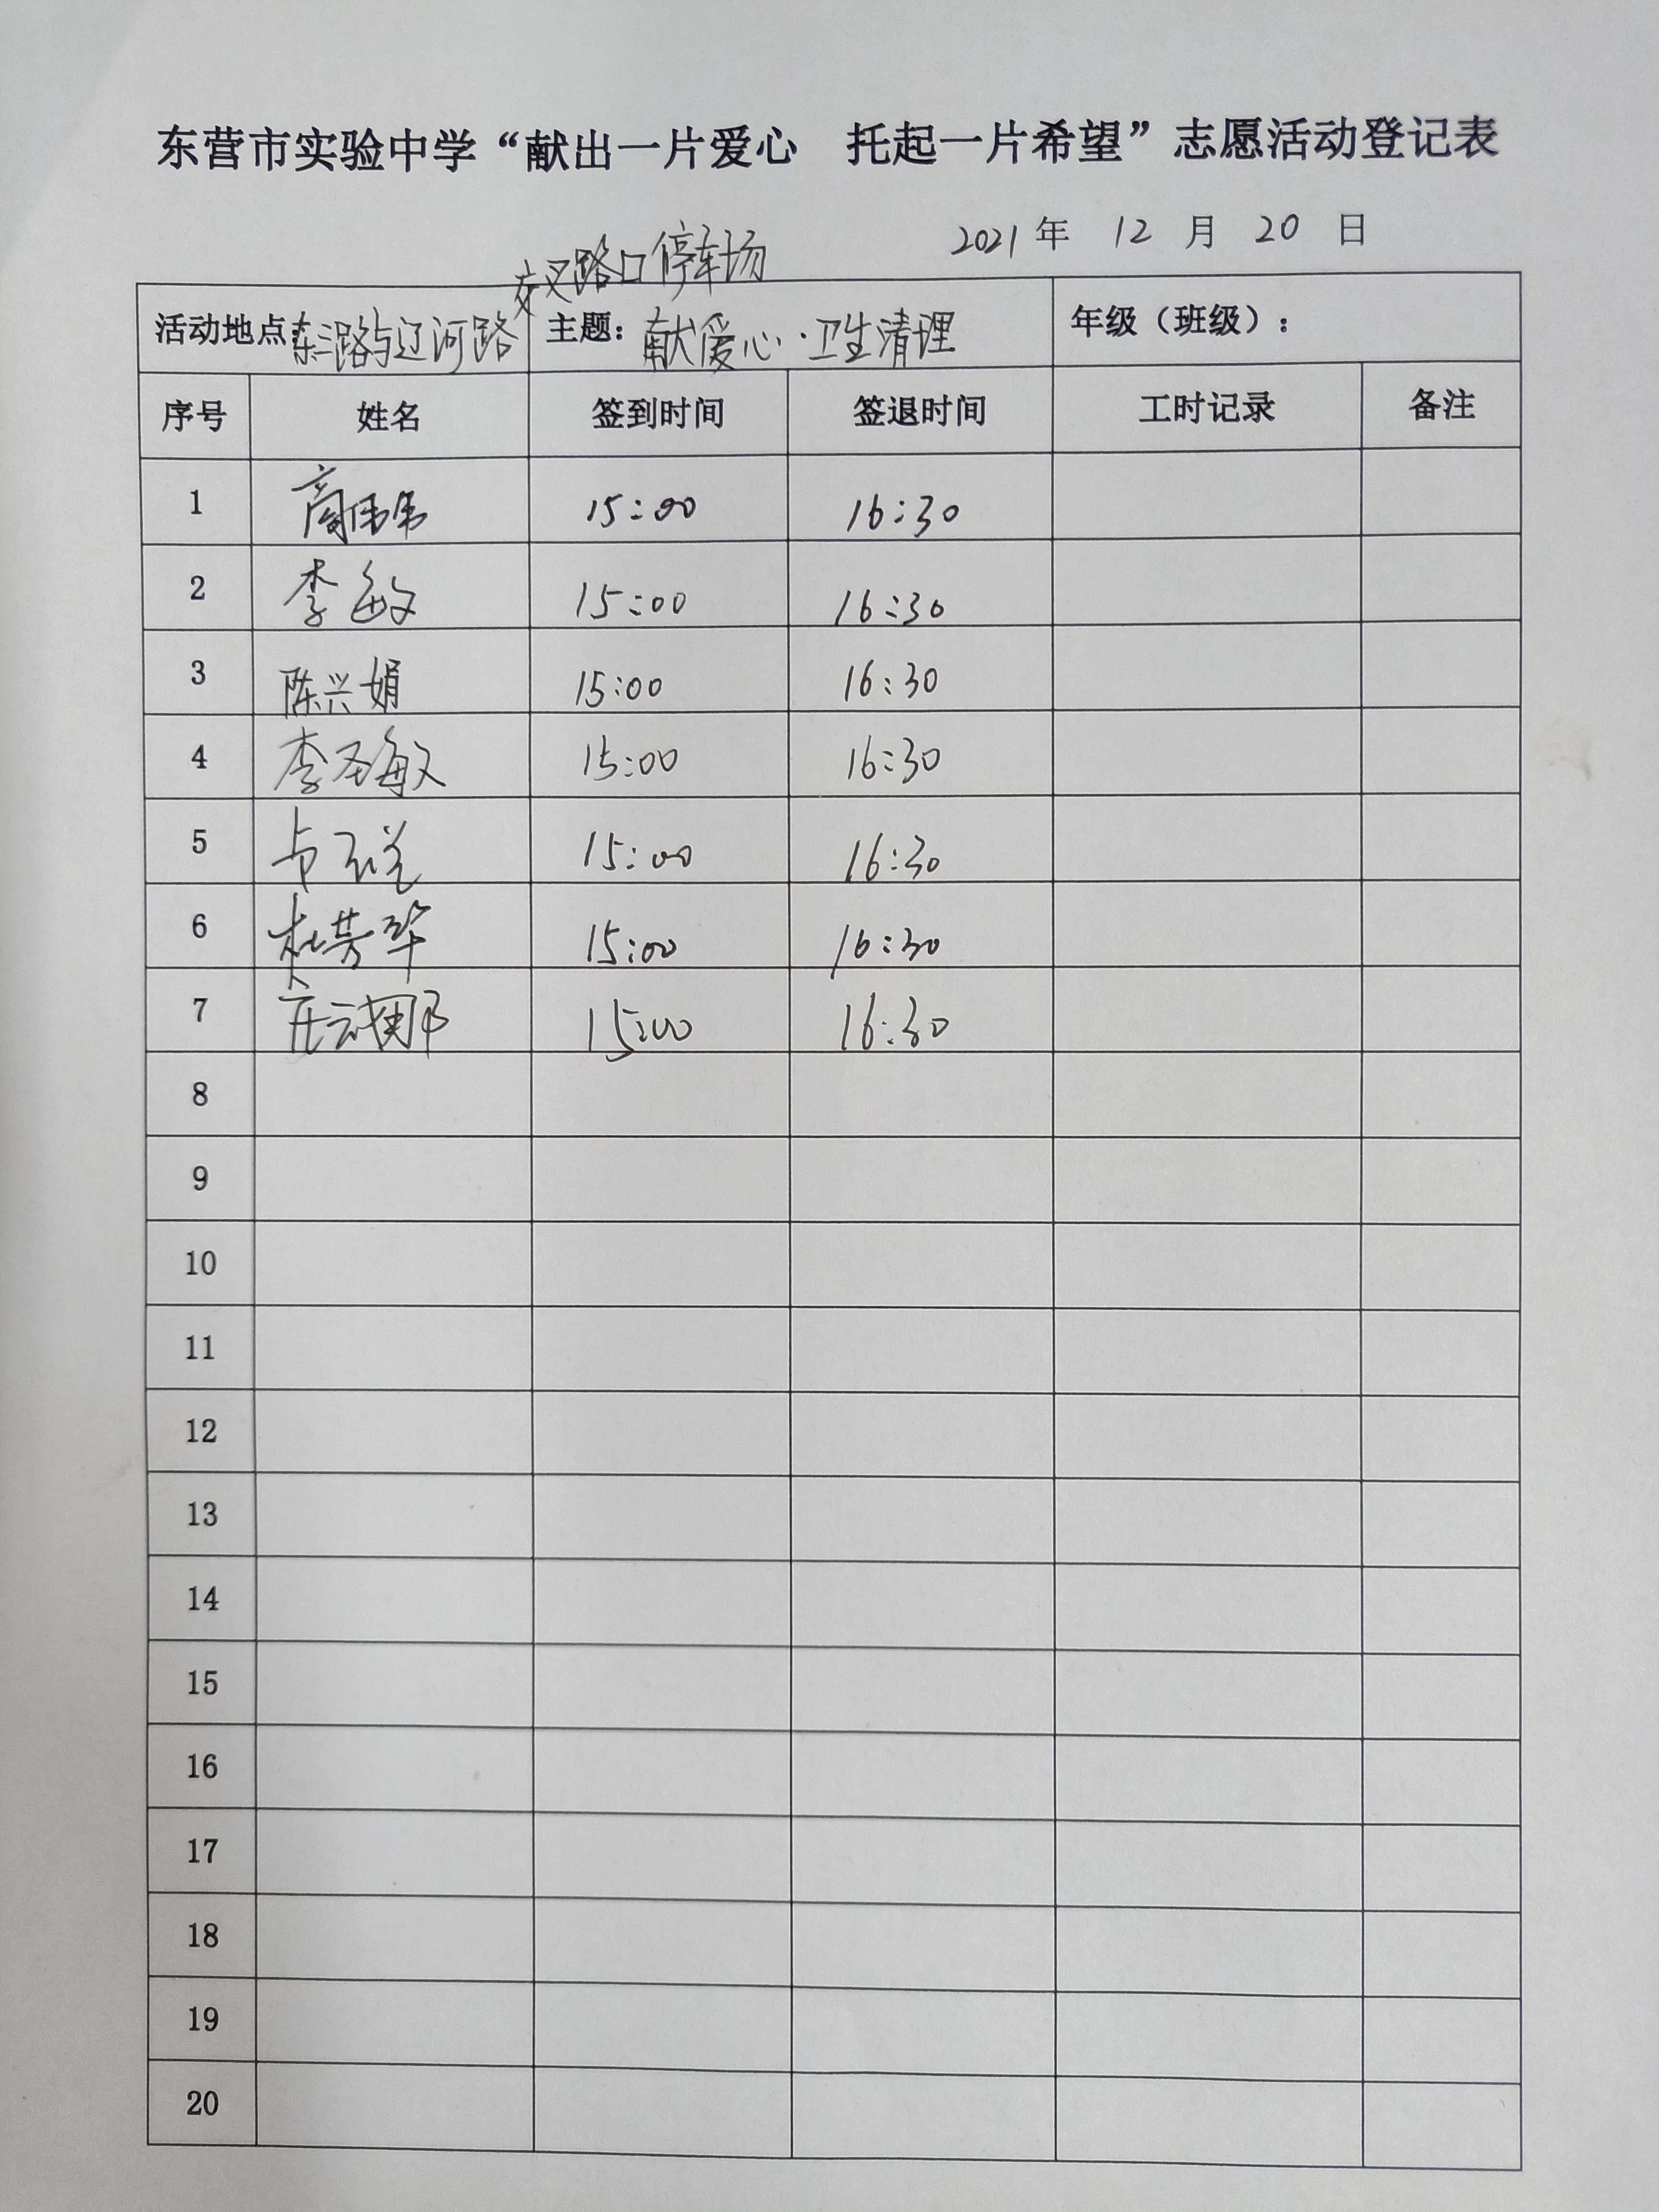 东营市实验中学“献出一片爱心 托起一片希望”志愿活动登记表
2021年 12 月 20 日
交叉路口停车场
活动地点东三路与辽河路 主题：献爱心·卫生清理 年级（班级）：
序号 姓名 签到时间 签退时间 工时记录 备注
1 商伟伟 15:00 16:30
2 李敏 15:00 16:30
3 陈兴娟 15:00 16:30
4 李圣敏 15:00 16:30
5 15:00 16:30
6 杜芳华 15:00 16:30
7 15:00 16:30
8
9
10
11
12
13
14
15
16
17
18
19
20